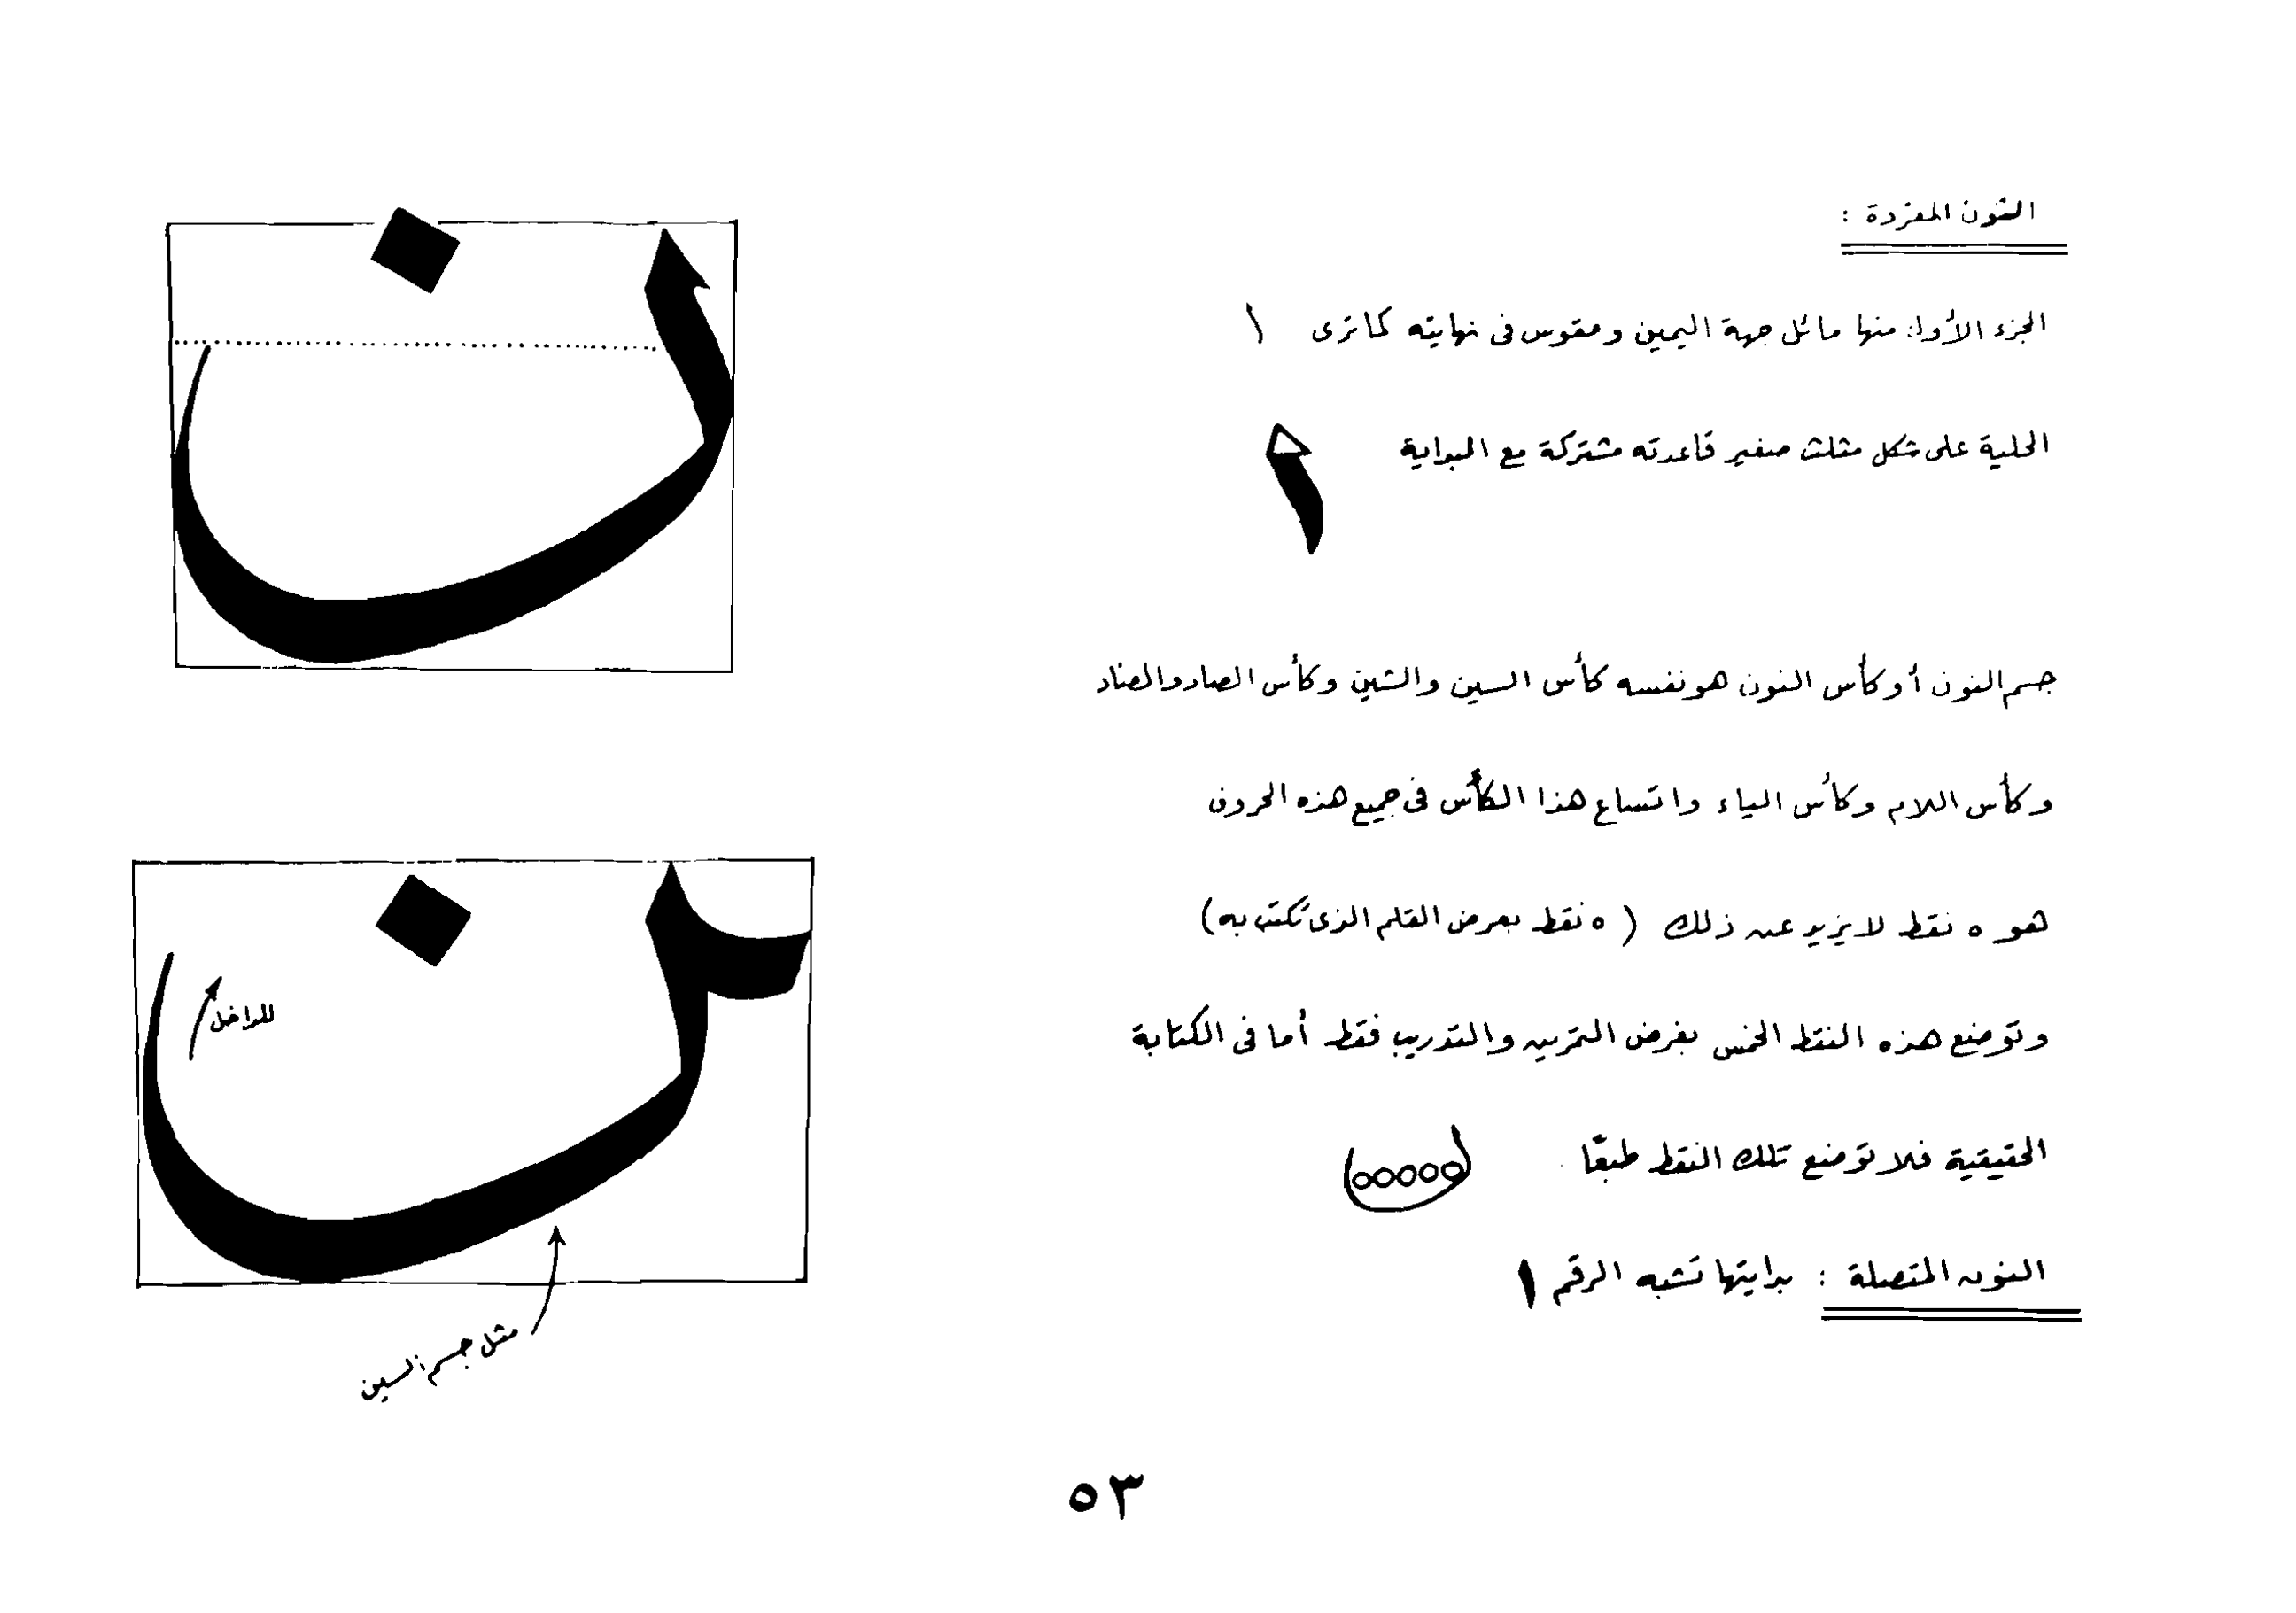 النون المفردة :
الجزء الأول منها مائل جهة اليمين ومقوس فى نهايته كما ترى ١
الحلية على شكل مثلث صغير قاعدته مشتركة مع البداية
جسم النون أو كأس النون هو نفسه كأس السين والشين وكأس الصاد والضاد
وكأس اللام وكأس الياء واتساع هذا الكأس فى جميع هذه الحروف
هو ٥ نقط لا يزيد عن ذلك ( ٥ نقط بعرض القلم الذى تكتب به )
وتوضع هذه النقط الخمس بغرض التمرين والتدريب فقط أما فى الكتابة
الحقيقية فلا توضع تلك النقط طبعًا
النون المتصلة : بدايتها تشبه الرقم ١
ن
ن
للداخل
مثل جسم السين
٥٣